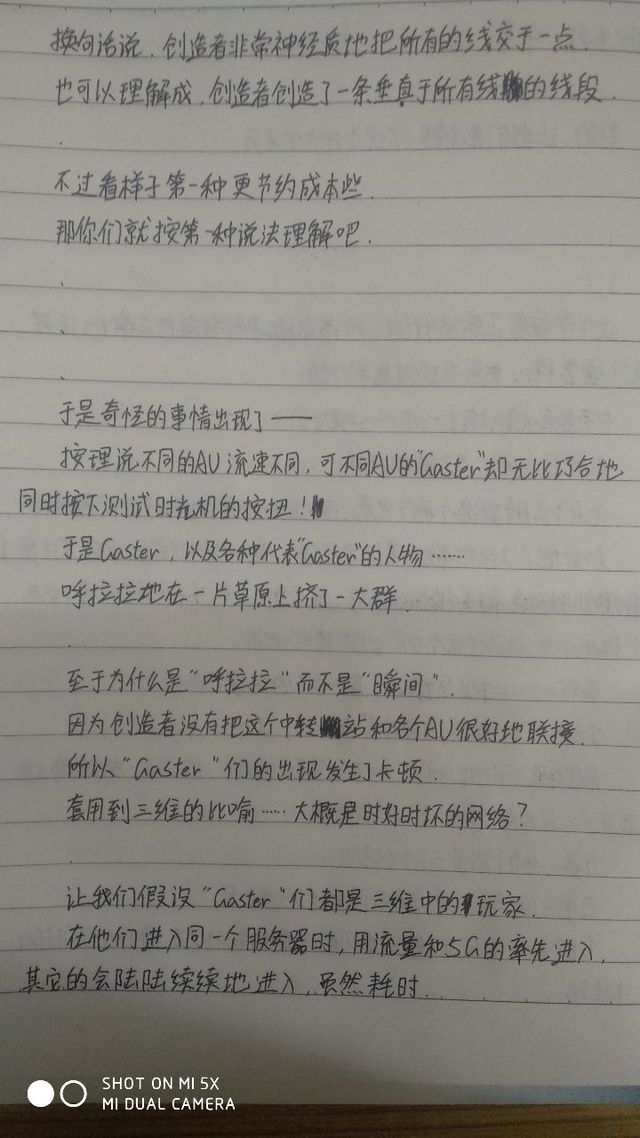 换句话说，创造者非常神经质地把所有的线交于一点．
也可以理解成，创造者创造了一条垂直于所有线的线段．
不过看样子第一种更节约成本些．
那你们就按第一种说法理解吧．
于是奇怪的事情出现了——
按理说不同的AU流速不同，可不同AU的"Gaster"却无比巧合地
同时按下测试时光机的按扭！
于是Gaster，以及各种代表"Gaster"的人物……
呼拉拉地在一片草原上挤了一大群．
至于为什么是"呼拉拉"而不是"瞬间"．
因为创造者没有把这个中转站和各个AU很好地联接．
所以"Gaster"们的出现发生了卡顿．
套用到三维的比喻……大概是时好时坏的网络？
让我们假设"Gaster"们都是三维中的玩家．
在他们进入同一个服务器时，用流量和5G的率先进入，
其它的会陆陆续续地进入，虽然耗时．
SHOT ON MI 5X
MI DUAL CAMERA